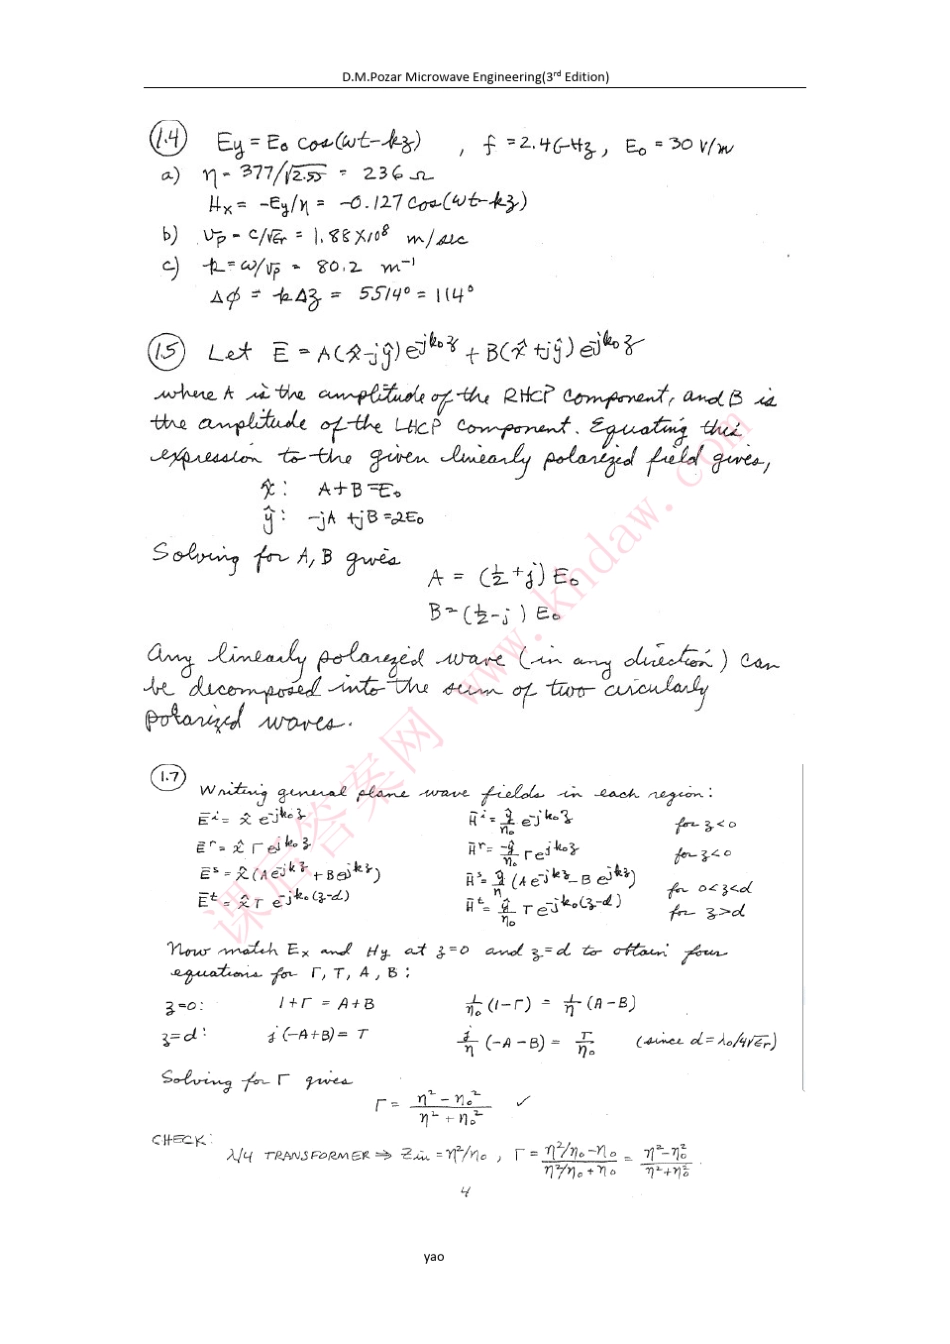 D.M.Pozar Microwave Engineering(3rd Edition)
1.4 Ey = E₀ cos(ωt-kz) , f = 2.4 GHz, E₀ = 30 V/m
a) η = 377/√2.55 = 236 Ω
Hx = -Ey/η = -0.127 cos(ωt-kz)
b) vp = c/√εr = 1.88 X10⁸ m/sec
c) k = ω/vp = 80.2 m⁻¹
Δφ = kΔz = 5514° = 114°
1.5 Let Ē = A(x̂-jŷ)e^-jk₀z + B(x̂+jŷ)e^-jk₀z
where A is the amplitude of the RHCP component, and B is
the amplitude of the LHCP component. Equating this
expression to the given linearly polarized field gives,
x̂: A+B=E₀
ŷ: -jA +jB =2E₀
Solving for A, B gives
A = (½+j) E₀
B = (½-j) E₀
Any linearly polarized wave (in any direction) can
be decomposed into the sum of two circularly
polarized waves.
1.7 Writing general plane wave fields in each region:
Ē^i = x̂ e^-jk₀z H̄^i = ŷ/η₀ e^-jk₀z for z<0
Ē^r = x̂ Γ e^jk₀z H̄^r = -ŷ/η₀ Γ e^jk₀z for z<0
Ē^s = x̂(A e^-jkz + B e^jkz) H̄^s = ŷ/η (A e^-jkz - B e^jkz) for 0<z<d
Ē^t = x̂ T e^-jk₀(z-d) H̄^t = ŷ/η₀ T e^-jk₀(z-d) for z>d
Now match Ex and Hy at z=0 and z=d to obtain four
equations for Γ, T, A, B:
z=0: 1+Γ = A+B 1/η₀ (1-Γ) = 1/η (A-B)
z=d: j(-A+B) = T j/η (-A-B) = T/η₀ (since d=λ₀/4√εr)
Solving for Γ gives
Γ = η²-η₀² / η²+η₀² ✓
CHECK:
λ/4 TRANSFORMER ⇒ Zin = η²/η₀ , Γ = η²/η₀-η₀ / η²/η₀+η₀ = η²-η₀² / η²+η₀² .
4
yao
课后答案网 www.khdaw.com